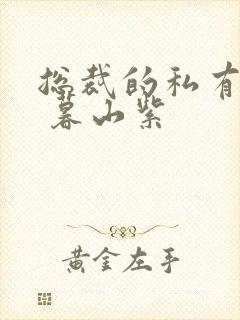 总裁的私有
暮山紫
黄金左手